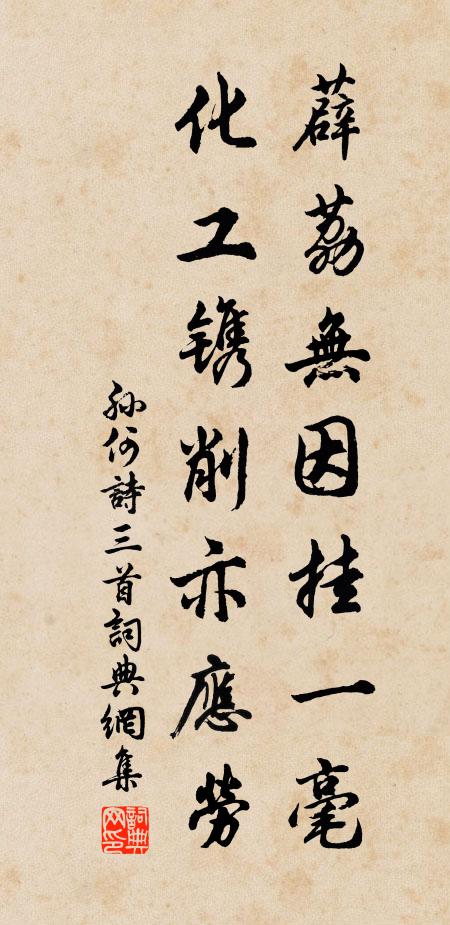 薜荔無因挂一毫
化工鐫削亦應勞
孫何詩三首詞典網集
詞典网印